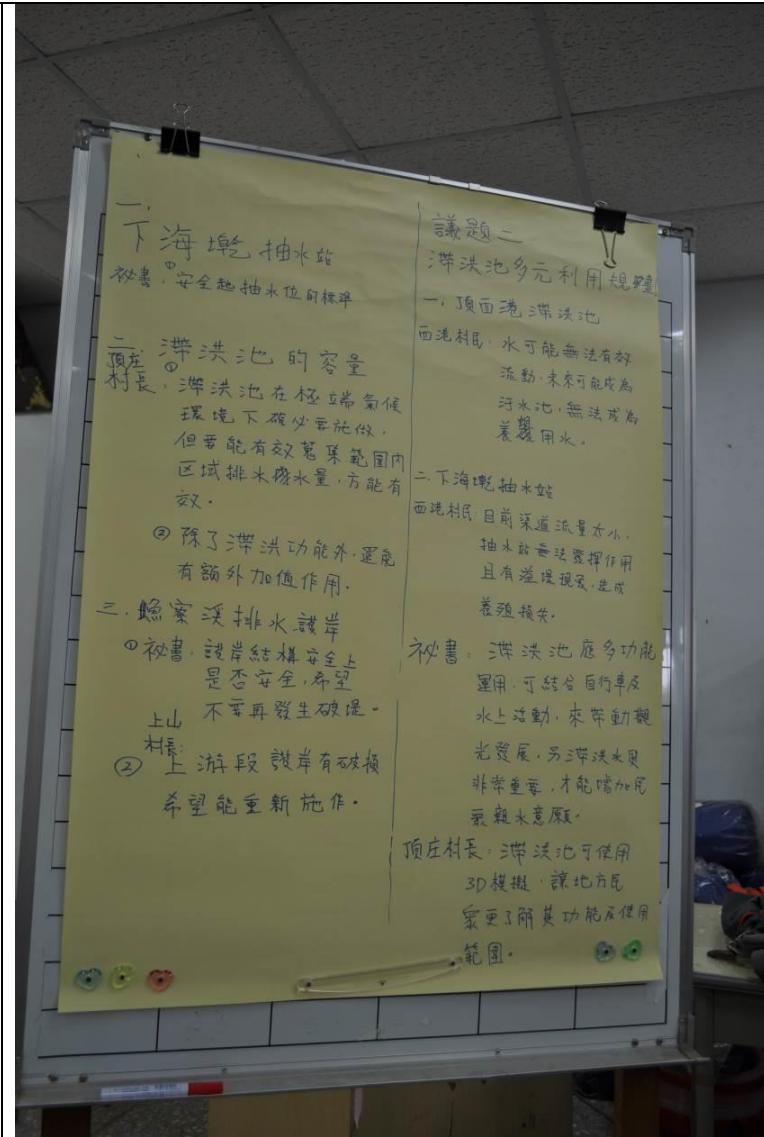 一.
下海墘抽水站
秘書:①安全起抽水位的標準
二.滯洪池的容量
頂庄村長:①滯洪池在極端氣候
環境下確必要施做,
但要能有效蒐集範圍內
区域排水廢水量,方能有
效。
②除了滯洪功能外,還能
有額外加值作用.
三.鴎寮溪排水護岸
①祕書.護岸結構安全上
是否安全,希望
不要再發生破堤。
上山村長:
②上游段護岸有破損
希望能重新施作。
議題二
滯洪池多元利用規劃
一.頂西港滯洪池
西港村民.水可能無法有效
流動.未來可能成為
污水池,無法成為
養殖用水.
二.下海墘抽水站
西港村民:目前渠道流量太小,
抽水站無法發揮作用
且有溢堤現象,造成
養殖損失.
祕書:滯洪池應多功能
運用.可結合自行車及
水上活動,來帶動觀
光發展,另滯洪水質
非常重要,才能增加民
眾親水意願。
頂庄村長:滯洪池可使用
3D模擬.讓地方民
眾更了解其功能及使用
範圍。